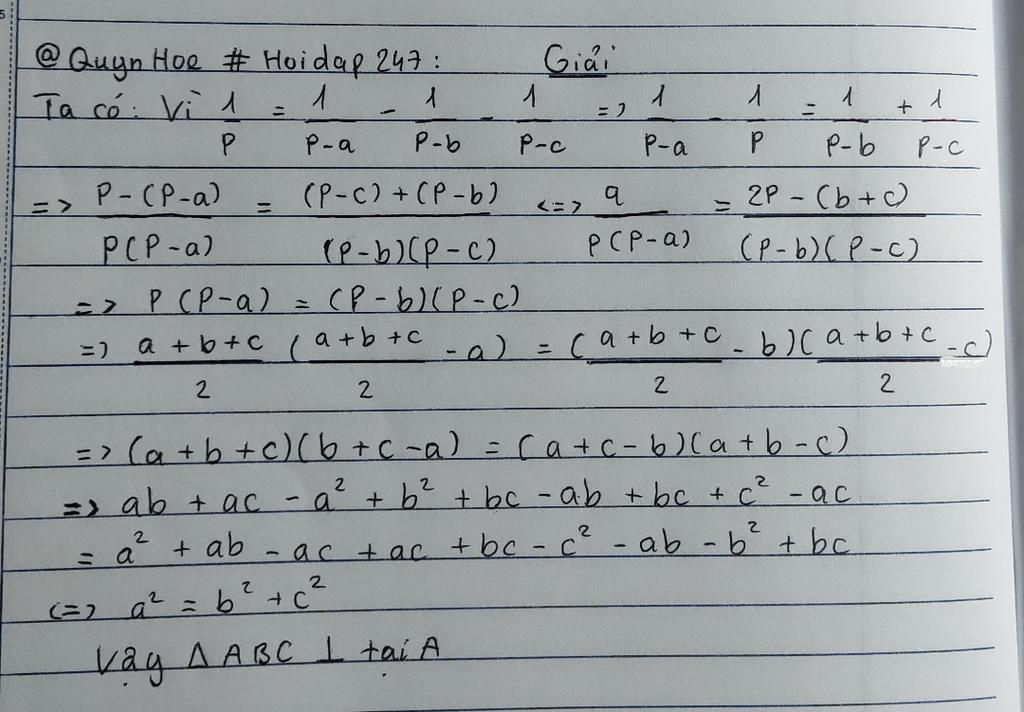 @ Quyn Hoe # Hoidap 247: Giải
Ta có: Vì 1/P = 1/P-a - 1/P-b - 1/P-c => 1/P-a - 1/P = 1/P-b + 1/P-c
=> P-(P-a)/P(P-a) = (P-c)+(P-b)/(P-b)(P-c) <=> a/P(P-a) = 2P-(b+c)/(P-b)(P-c)
=> P(P-a) = (P-b)(P-c)
=> a+b+c/2 (a+b+c/2 - a) = (a+b+c/2 - b)(a+b+c/2 - c)
=> (a+b+c)(b+c-a) = (a+c-b)(a+b-c)
=> ab + ac - a² + b² + bc - ab + bc + c² - ac
= a² + ab - ac + ac + bc - c² - ab - b² + bc
<=> a² = b² + c²
Vậy Δ ABC ⊥ tại A